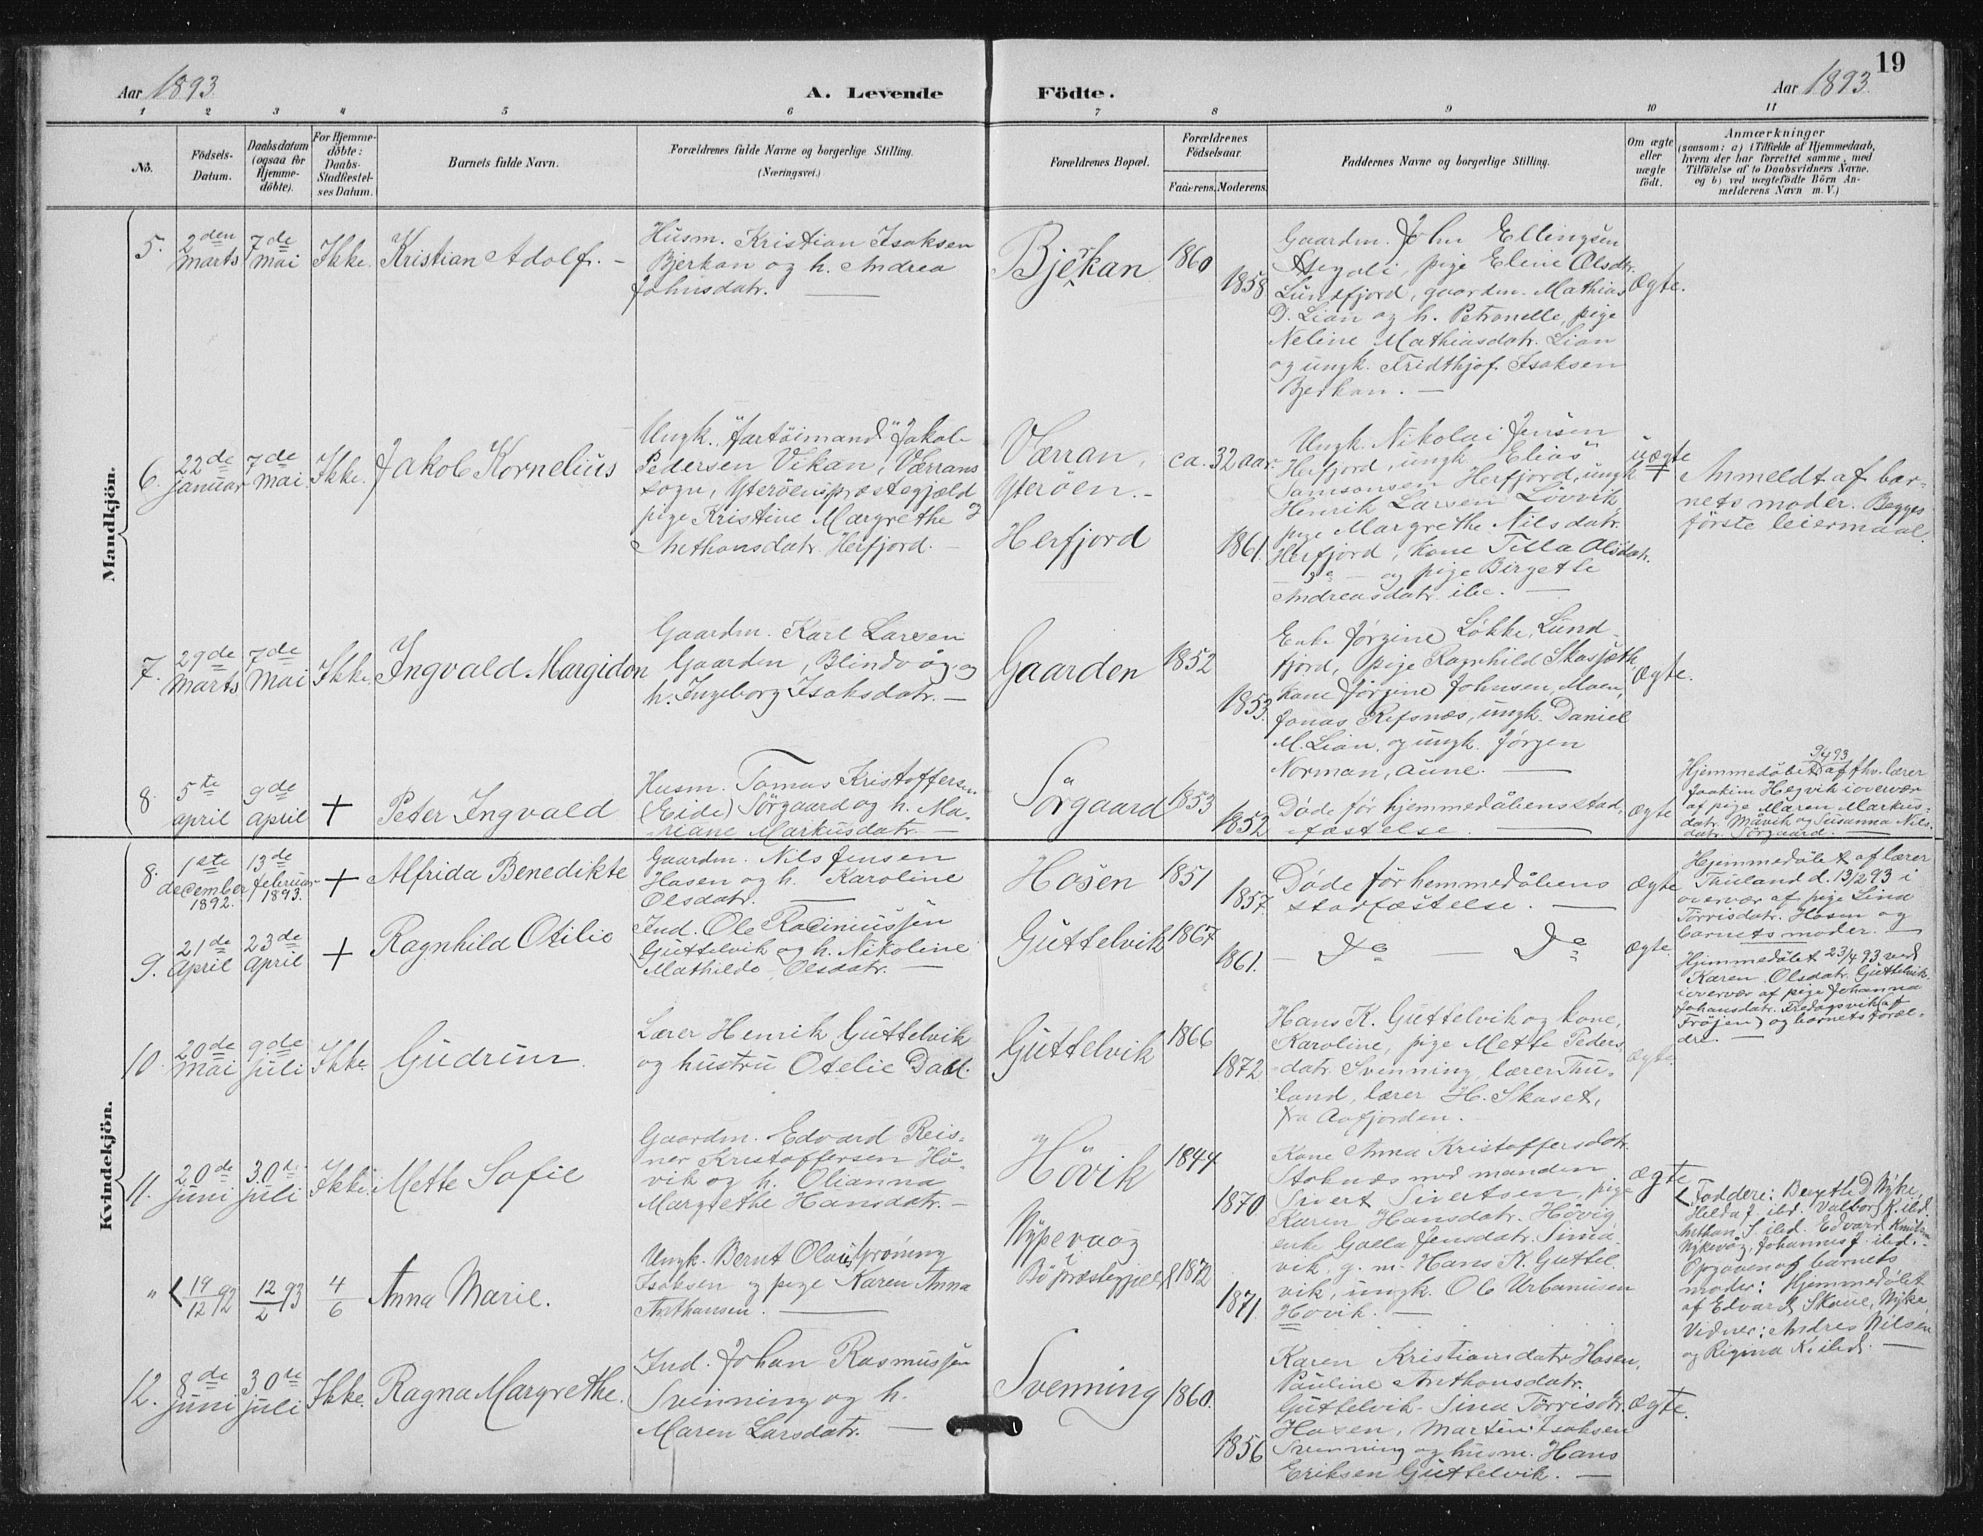 19
Aar 1893.
A. Levende
Födte.
Aar 1893.
1 2 3 4 5 6 7 8 9 10 11
No.
Födsels-
Datum.
Daabsdatum
(ogsaa for
Hjemme-
döbte).
For Hjemme-
döbte:
Daabs-
Stadfæstel-
ses Datum.
Barnets fulde Navn.
Forældrenes fulde Navne og borgerlige Stilling.
(Næringsvei.)
Forældrenes Bopæl.
Forældrenes
Födselsaar.
Faderens. Moderens.
Faddernes Navne og borgerlige Stilling.
Om ægte
eller
uægte
født.
Anmærkninger
(saasom: a) i Tilfælde af Hjemmedaab,
hvem der har forrettet samme, med
Tilföielse af to Daabsvidners Navne.
og b) ved uægtefödte Börn An-
melderens Navn m. V.)
Mandkjön.
5.
2den
marts
7de
mai
Ikke.
Kristian Adolf. -
Husm. Kristian Isaksen
Bjerkan og h. Andrea
Johnsdatr. —
Bjerkan
1860
1858
Gaardm. John Ellingsen
pige Eline Olsdtr.
Lundfjord, gaardm. Mathias
D. Lian og h. Petronelle, pige
Neline Mathiasdatr. Lian
og ungk. Fridthjof. Isaksen
Bjerkan. —
Ægte.
6.
22de
januar
7de
mai
Ikke.
Jakob Kornelius
Ungk. "fartöimand" Jakob
Pedersen Vikan, Værrans
sogn, Yteröens præstegjæld
pige Kristine Margrethe
Anthonsdatr. Herfjord. —
Værran,
Yteröen. -
Herfjord
ca. 32 aar.
1861.
Ungk. Nikolai Jensen
Herfjord, ungk. Elias
Samsonsen Herfjord, ungk
Henrik Larsen Lövvik
pige Margrethe Nilsdatr.
Herfjord, kone Tilla Olsdatr.
— de — og pige Birgette
Andreasdatr. ibd. —
uægte
+
Anmeldt af bar-
nets moder. Begges
förste leiermaal.
7.
29de
Marts
7de
Mai
Ikke.
Ingvald Margidon
Gaardm. Karl Larsen
Gaarden, Blindvåg og
h. Ingeborg Isaksdatr. —
Gaarden
1852
1853.
Enke Jørgine Løkke, Lund-
fjord, pige Ragnhild
kone Jørgine Johnsen, Moen,
Jonas Refsnæs, ungk. Daniel
M. Lian, og ungk. Jørgen
Norman, Aune. —
Ægte.
8.
5te
april
9de
April
+
Peter Ingvald
Husm. Tomas Kristoffersen
(Eide) Sörgaard og h. Ma-
riane Markusdatr. —
Sörgaard
1853
1852
Döde för hjemmedåbens stad-
fæstelse. —
ægte
Hjemmedöbt 9/4 93 af fhv. lærer
Joachim Hegvik i overvær
af pige Maren Markus-
datr. Måvik og Susanna Nils-
datr. Sörgaard. —
Kvindekjön.
8.
1ste
december
1892.
13de
februar
1893.
+
Alfrida Benedikte
Gaardm. Nils Jensen
Hosen og h. Karoline
Olsdatr. —
Hosen
1851
1857.
Döde för hemmedåbens
stadfæstelse. —
ægte
Hjemmedöbt af lærer
Thuland d. 13/2 93 i
overvær af pige Lina
Törrisdatr. Hosen og
barnets moder. —
9.
21de
April
23de
April
+
Ragnhild Otilie
Ind. Ole Rasmussen
Guttelvik og h. Nikoline
Mathilde Olsdatr. —
Guttelvik
1867
1861.
— de — de
ægte.
Hjemmedöbt 23/4 93 ved
Karen Olsdatr. Guttelvik.
i overvær af pige Johanna
Johansdatr. Fredagsvik (af
Fröjen) og barnets foræl-
dre. —
10.
20de
mai
9de
juli
Ikke
Gudrun.
Lærer Henrik Guttelvik
og hustru Otelie Dahl.
Guttelvik
1866
1872
Hans K. Guttelvik og kone,
Karoline, pige Mette Peders-
datr. Svenning, lærer Thu-
land, lærer H. Skaset,
fra Aafjorden.
ægte.
11.
20de
juni
30te
juli
Ikke.
Mette Sofie
Gaardm. Edvard Reis-
ner Kristoffersen Hö-
vik og h. Olianna
Margrethe Hansdatr. —
Hövik
1844
1870
Kone Anna Kristoffersdatr.
Stoknæs med manden
Sivert Sivertsen, pige
Karen Hansdatr. Hövig
enke Golla Jensdatr. Sina-
vik, g. m. Hans K. Guttel-
vik, ungk. Ole Urbanusen
Hovik. —
ægte
" <
19/12 92
12/2 93
4/6
Anna Marie.
Ungk. Bernt Olaus Gröning
Isaksen og pige Karen Anna
Anthonsen. —
Nypevaag
Bö Præstegjeld
1872
1871
< Faddere: Bergethe D Nyke,
Hilda J. ibd. Valborg K. ibd.
Anthon S. ibd. Edvard Knutsen
Nykevåg, Johannes J. ibd. -
Opgaven af barnets
moder: Hjemmedöbt
af Edvard Skoue, Nyke
Vidner: Andres Nilsen
og Regina K. ibd. —
12.
8de
juni
30te
juli
Ikke.
Ragna Margrethe.
Ind. Johan Rasmussen
Svinning og h.
Maren Larsdatr. —
Svenning
1860.
1856
Karen Kristiansdatr. Hosen,
Pauline Anthonsdatr.
Guttelvik. Lina Törrisdtr
Hosen, Martin Isaksen
Svenning og husm. Hans
Eriksen Guttelvik. —
Ægte.